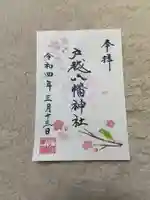 奉拝
戸越八幡神社
令和四年三月十三日